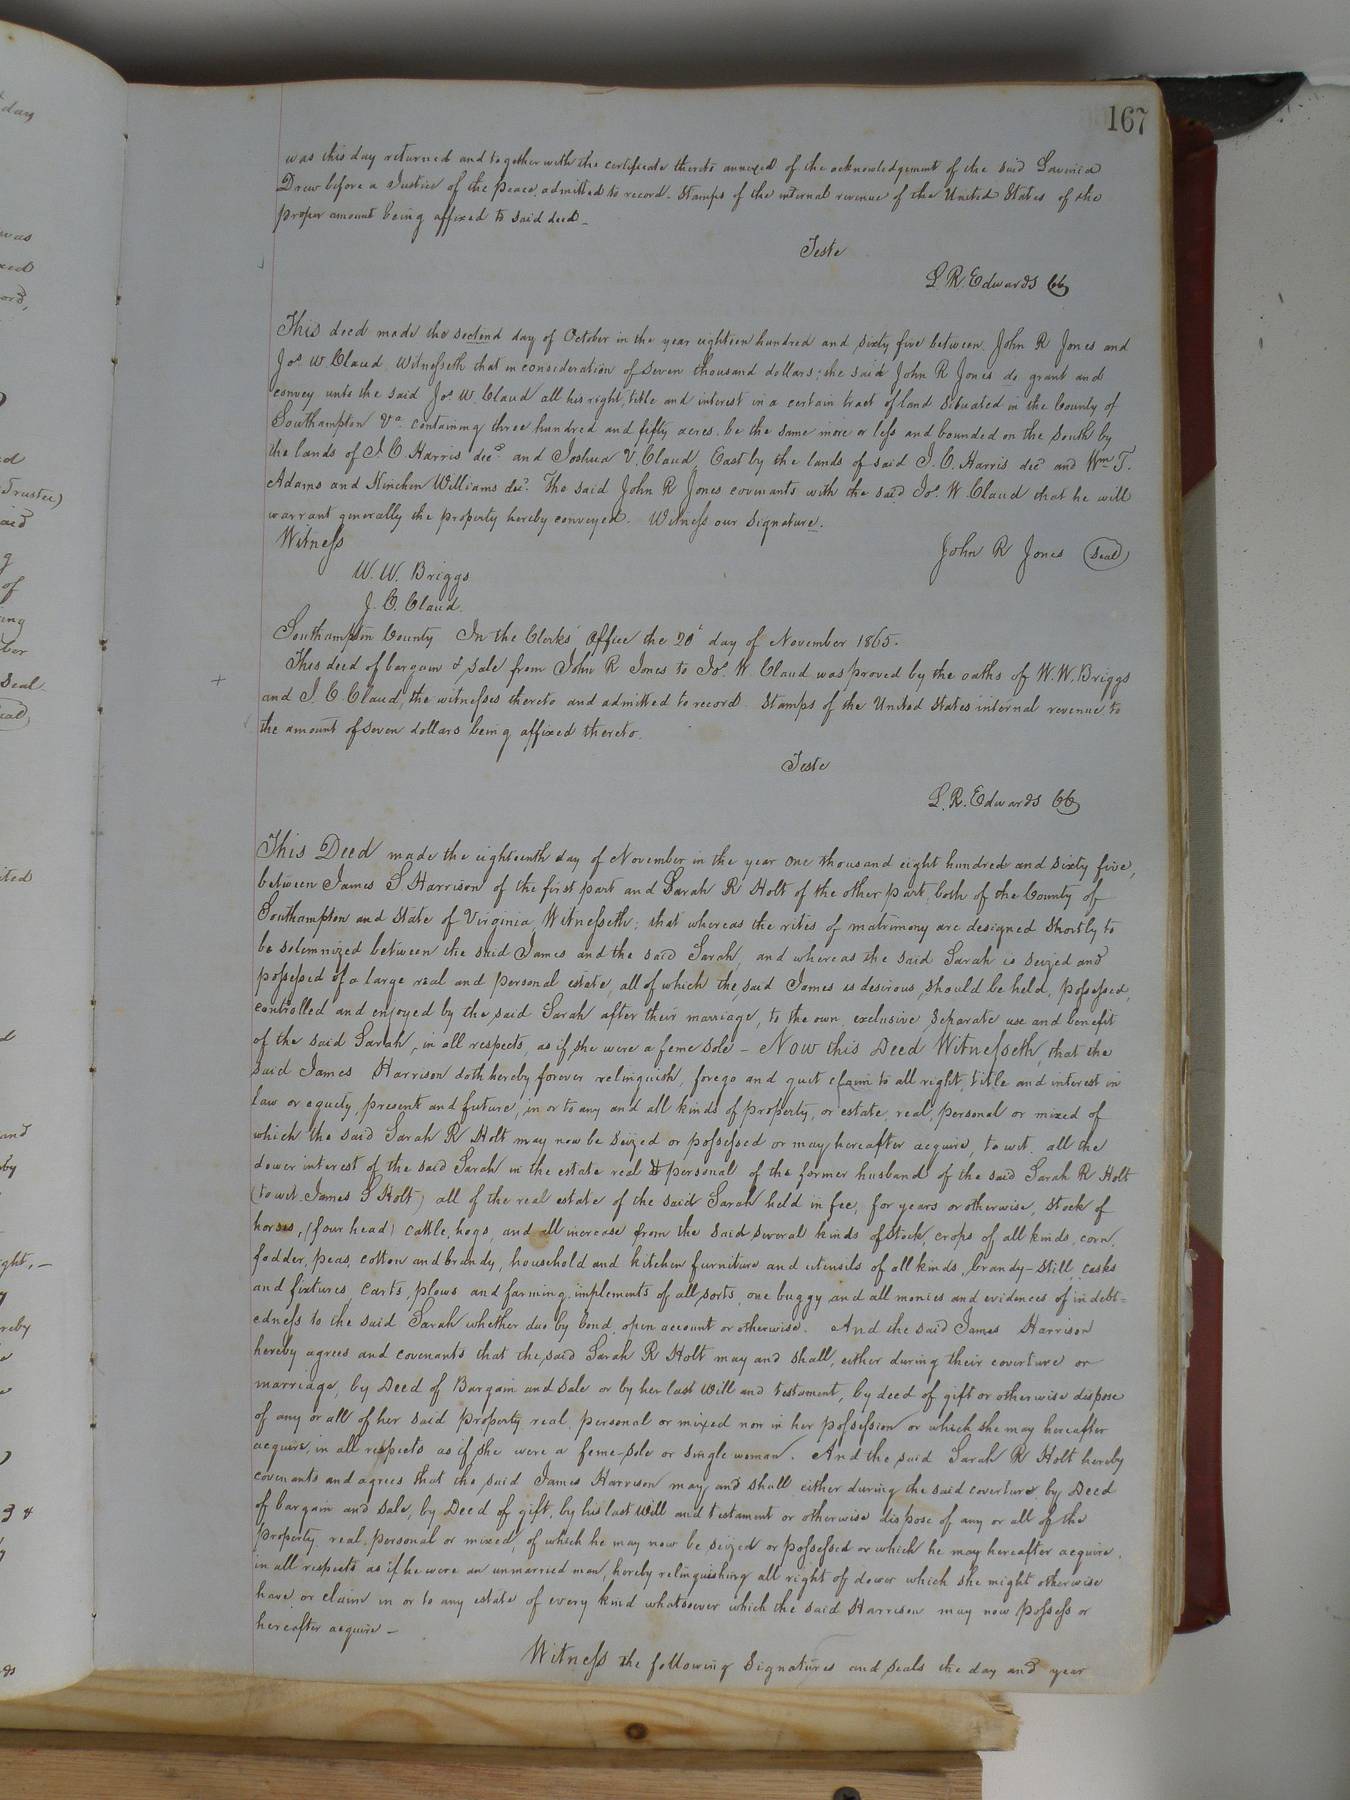 167
was this day returned and together with the certificate thereto annexed of the acknowledgement of the said Lavinia
Drew before a Justice of the peace, admitted to record. Stamps of the internal revenue of the United States of the
proper amount being affixed to said deed –
Teste
L. R. Edwards CC
This deed made the second day of October in the year eighteen hundred and sixty five between John R Jones and
Jos. W. Claud Witnesseth that in consideration of seven thousand dollars; the said John R Jones do grant and
convey unto the said Jos. W. Claud all his right, title and interest in a certain tract of land situated in the County of
Southampton Va. containing three hundred and fifty acres. be the same more or less and bounded on the South by
the lands of J. C. Harris decd. and Joshua V. Claud, East by the lands of said J. C. Harris decd and Wm T.
Adams and Kinchen Williams decd. The said John R Jones covenants with the said Jos. W Claud that he will
warrant generally the property hereby conveyed. Witness our signature.
Witness
John R Jones Seal
W. W. Briggs
J. C. Claud.
Southampton County In the Clerks' Office the 20th day of November 1865.
This deed of bargain & sale from John R Jones to Jos. W. Claud was proved by the oaths of W. W. Briggs
and J. C Claud, the witnesses thereto and admitted to record. Stamps of the United States internal revenue to
the amount of seven dollars being affixed thereto.
Teste
L. R. Edwards CC
This Deed made the eighteenth day of November in the year one thousand eight hundred and sixty five,
between James S Harrison of the first part and Sarah R Holt of the other part, both of the County of
Southampton and State of Virginia, Witnesseth; that whereas the rites of matrimony are designed shortly to
be solemnized between the said James and the said Sarah, and whereas the said Sarah is seized and
possessed of a large real and personal estate, all of which the said James is desirous, should be held, possessed,
controlled and enjoyed by the said Sarah after their marriage, to the own, exclusive, separate use and benefit
of the said Sarah, in all respects, as if she were a feme sole – Now this Deed Witnesseth, that the
said James Harrison doth hereby forever relinquish, forego and quit claim to all right, title and interest in
law or equity, present and future, in or to any and all kinds of property, or estate, real, personal or mixed of
which the said Sarah R Holt may now be seized or possessed or may hereafter acquire, to wit. all the
dower interest of the said Sarah in the estate real & personal of the former husband of the said Sarah R Holt
(to wit. James S Holt) all of the real estate of the said Sarah held in fee, for years or otherwise, stock of
horses, (four head) cattle, hogs, and all increase from the said several kinds of stock, crops of all kinds, corn,
fodder, peas, cotton and brandy, household and kitchen furniture and utensils of all kinds, brandy-still, casks
and fixtures, carts, plows and farming implements of all sorts, one buggy and all monies and evidences of indebt=
edness to the said Sarah whether due by bond, open account or otherwise. And the said James Harrison
hereby agrees and covenants that the said Sarah R Holt may and shall, either during their coverture or
marriage, by Deed of Bargain and sale or by her last will and testament, by deed of gift or otherwise dispose
of any or all of her said property real, personal or mixed now in her possession or which she may hereafter
acquire, in all respects as if she were a feme-sole or single woman. And the said Sarah R Holt hereby
covenants and agrees that the said James Harrison may and shall either during the said coverture, by Deed
of bargain and sale, by Deed of gift, by his last will and testament or otherwise dispose of any or all of the
property, real, personal or mixed, of which he may now be seized or possessed or which he may hereafter acquire,
in all respects as if he were an unmarried man, hereby relinquishing all right of dower which she might otherwise
have or claim in or to any estate of every kind whatsoever which the said Harrison may now possess or
hereafter acquire –
Witness the following signatures and seals the day and year